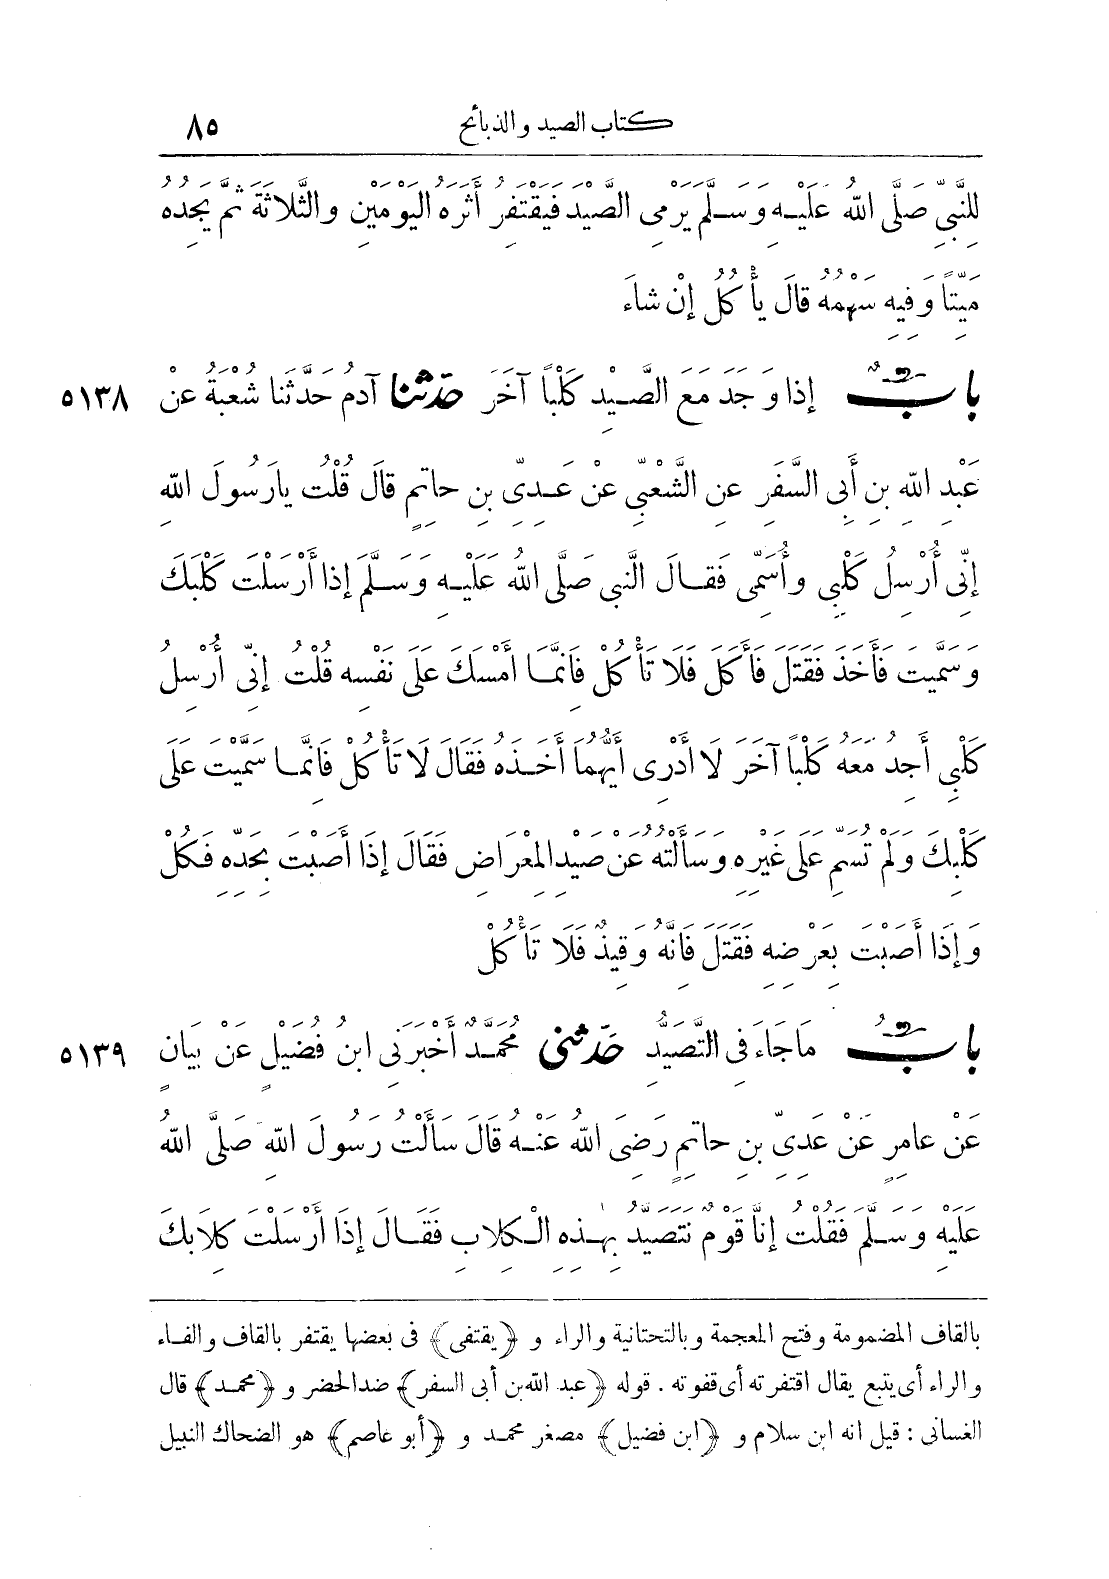 كتاب الصيد والذبائح ٨٥
لِلنَّبِيِّ صَلَّى اللهُ عَلَيْهِ وَسَلَّمَ يَرْمِى الصَّيْدَ فَيَقْتَفِرُ أَثَرَهُ الْيَوْمَيْنِ وَالثَّلَاثَةَ ثُمَّ يَجِدُهُ
مَيِّتًا وَفِيهِ سَهْمُهُ قَالَ يَأْكُلُ إِنْ شَاءَ
بَابٌ إِذَا وَجَدَ مَعَ الصَّيْدِ كَلْبًا آخَرَ حَدَّثَنَا آدَمُ حَدَّثَنَا شُعْبَةُ عَنْ ٥١٣٨
عَبْدِ اللهِ بْنِ أَبِى السَّفَرِ عَنِ الشَّعْبِىِّ عَنْ عَدِىِّ بْنِ حَاتِمٍ قَالَ قُلْتُ يَارَسُولَ اللهِ
إِنِّى أُرْسِلُ كَلْبِى وَأُسَمِّى فَقَالَ النَّبِى صَلَّى اللهُ عَلَيْهِ وَسَلَّمَ إِذَا أَرْسَلْتَ كَلْبَكَ
وَسَمَّيْتَ فَأَخَذَ فَقَتَلَ فَأَكَلَ فَلَا تَأْكُلْ فَإِنَّمَا أَمْسَكَ عَلَى نَفْسِهِ قُلْتُ إِنِّى أُرْسِلُ
كَلْبِى أَجِدُ مَعَهُ كَلْبًا آخَرَ لَا أَدْرِى أَيُّهُمَا أَخَذَهُ فَقَالَ لَا تَأْكُلْ فَإِنَّمَا سَمَّيْتَ عَلَى
كَلْبِكَ وَلَمْ تُسَمِّ عَلَى غَيْرِهِ وَسَأَلْتُهُ عَنْ صَيْدِ الْمِعْرَاضِ فَقَالَ إِذَا أَصَبْتَ بِحَدِّهِ فَكُلْ
وَإِذَا أَصَبْتَ بِعَرْضِهِ فَقَتَلَ فَإِنَّهُ وَقِيذٌ فَلَا تَأْكُلْ
بَابُ مَا جَاءَ فِى التَّصَيُّدِ حَدَّثَنِى مُحَمَّدٌ أَخْبَرَنِى ابْنُ فُضَيْلٍ عَنْ بَيَانٍ ٥١٣٩
عَنْ عَامِرٍ عَنْ عَدِىِّ بْنِ حَاتِمٍ رَضِىَ اللهُ عَنْهُ قَالَ سَأَلْتُ رَسُولَ اللهِ صَلَّى اللهُ
عَلَيْهِ وَسَلَّمَ فَقُلْتُ إِنَّا قَوْمٌ نَتَصَيَّدُ بِهٰذِهِ الْكِلَابِ فَقَالَ إِذَا أَرْسَلْتَ كِلَابَكَ
بالقاف المضمومة وفتح المعجمة وبالتحتانية والراء و ﴿يقتفى﴾ فى بعضها يقتفر بالقاف والفاء
والراء أى يتبع يقال اقتفرته أى قفوته . قوله ﴿عبد الله بن أبى السفر﴾ ضد الحضر و ﴿محمد﴾ قال
الغسانى : قيل انه ابن سلام و ﴿ابن فضيل﴾ مصغر محمد و ﴿أبو عاصم﴾ هو الضحاك النبيل